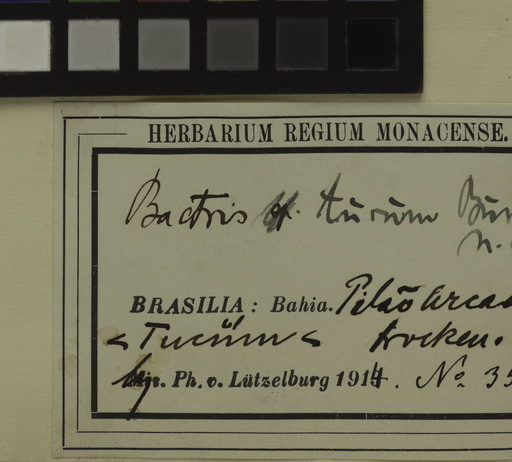 HERBARIUM REGIUM MONACENSE.
Bactris turum Bur
n.
BRASILIA: Bahia. Pilão Arca
Tucŭm trocken.
Ph. v. Lützelburg 1914. No 35